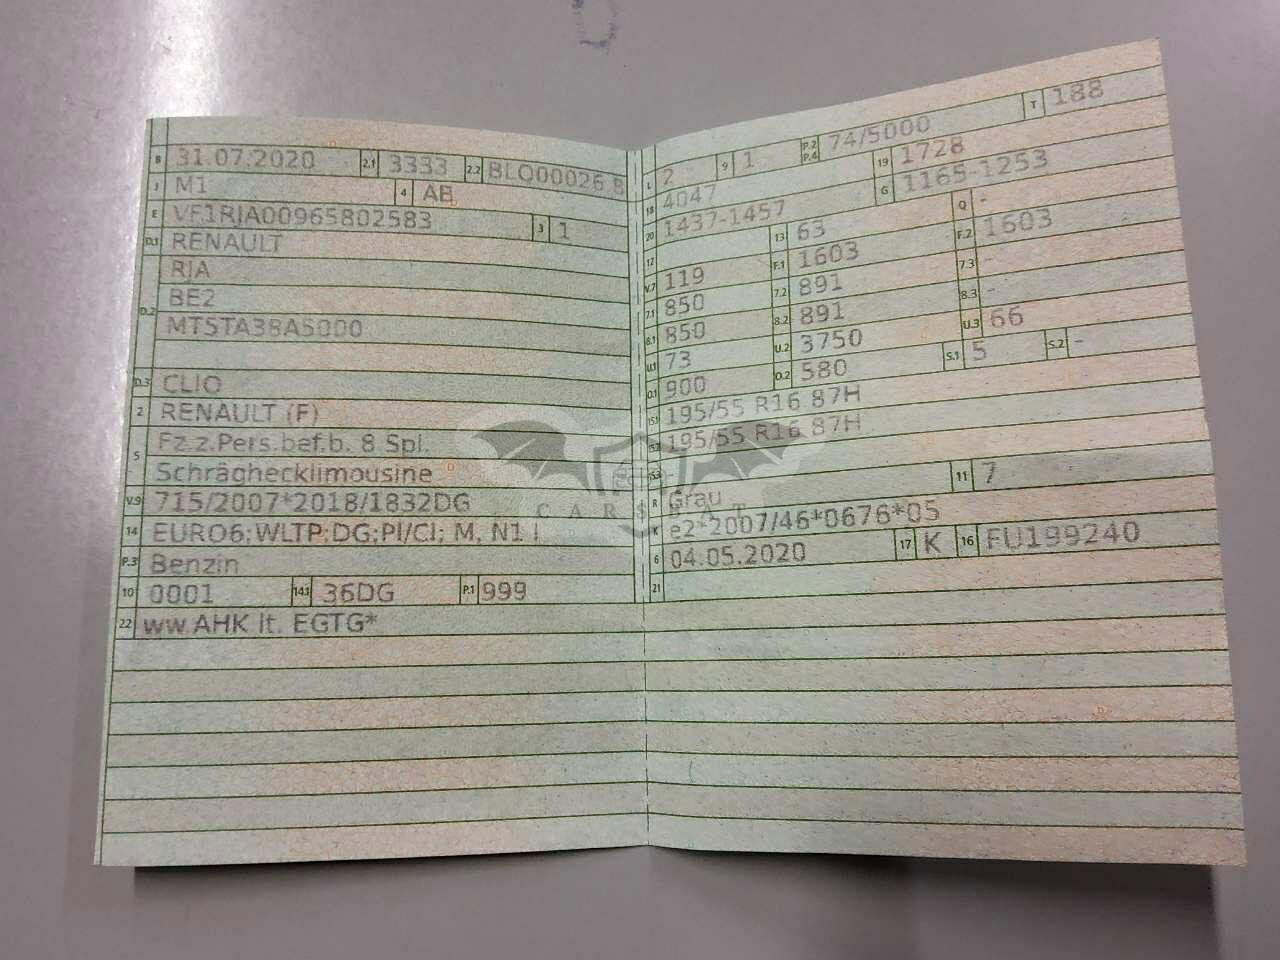 B 31.07.2020 2.1 3333 2.2 BLQ00026 8
J M1 4 AB
E VF1RJA00965802583 3 1
D.1 RENAULT
RJA
D.2 BE2
MT5TA3BA5000
D.3 CLIO
2 RENAULT (F)
5 Fz.z.Pers.bef.b. 8 Spl.
Schräghecklimousine
V.9 715/2007*2018/1832DG
14 EURO6;WLTP;DG;PI/CI; M, N1 I
P.3 Benzin
10 0001 14.1 36DG P.1 999
22 ww.AHK lt. EGTG*
L 2 9 1 P.2 P.4 74/5000 T 188
18 4047 19 1728
20 1437-1457 G 1165-1253
12 13 63 Q -
V.7 119 F.1 1603 F.2 1603
7.1 850 7.2 891 7.3 -
8.1 850 8.2 891 8.3 -
U.1 73 U.2 3750 U.3 66
O.1 900 O.2 580 S.1 5 S.2 -
15.1 195/55 R16 87H
15.2 195/55 R16 87H
15.3
R Grau 11 7
K e2*2007/46*0676*05
6 04.05.2020 17 K 16 FU199240
21